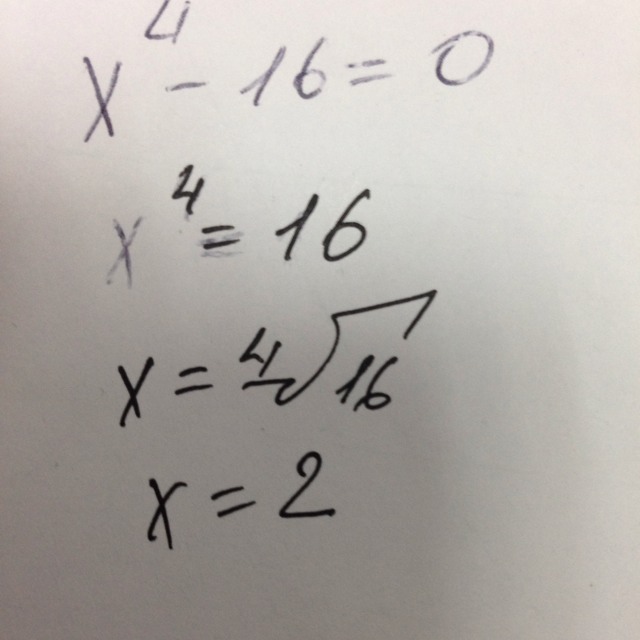 x⁴ - 16 = 0
x⁴ = 16
x = ⁴√16
x = 2